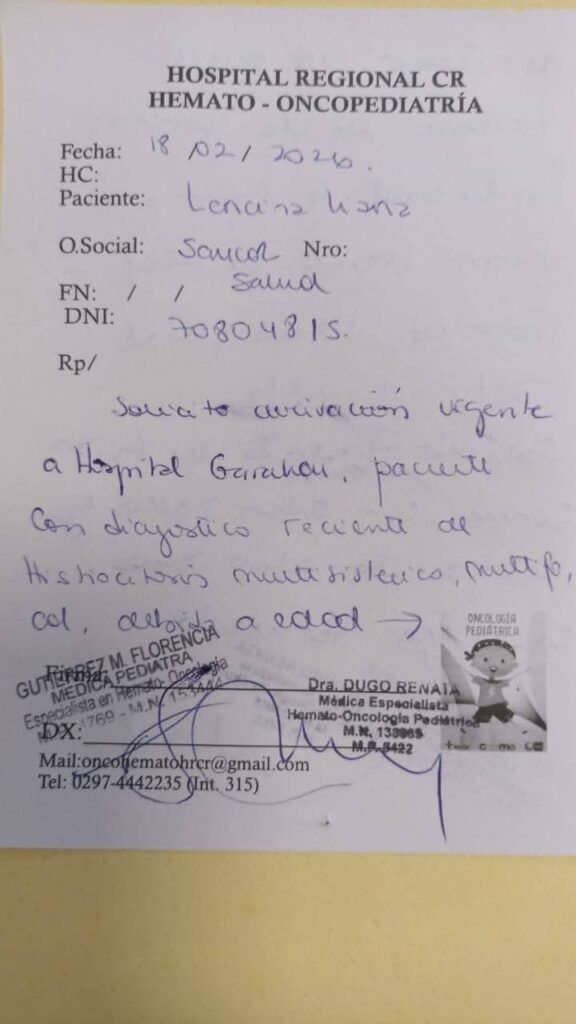 HOSPITAL REGIONAL CR
HEMATO - ONCOPEDIATRÍA
Fecha: 18 / 02 / 2026.
HC:
Paciente: Lencina
O.Social: Sancor Nro:
Salud
FN: / /
DNI: 70804815.
Rp/
Solicito derivación urgente
a Hospital Garrahan, paciente
con diagostico reciente de
Histiocitosis multisistémico, multifo,
cal, debido a edad →
ONCOLOGÍA
PEDIÁTRICA
Firma:
GUTIERREZ M. FLORENCIA
MÉDICA PEDIATRA
Especialista en Hemato-Oncología
4769 - M.N. 153444
Dra. DUGO RENATA
Médica Especialista
Hemato-Oncología Pediátrica
M.N. 138965
M.P. 5422
DX:
Mail:oncohematohrcr@gmail.com
Tel: 0297-4442235 (Int. 315)